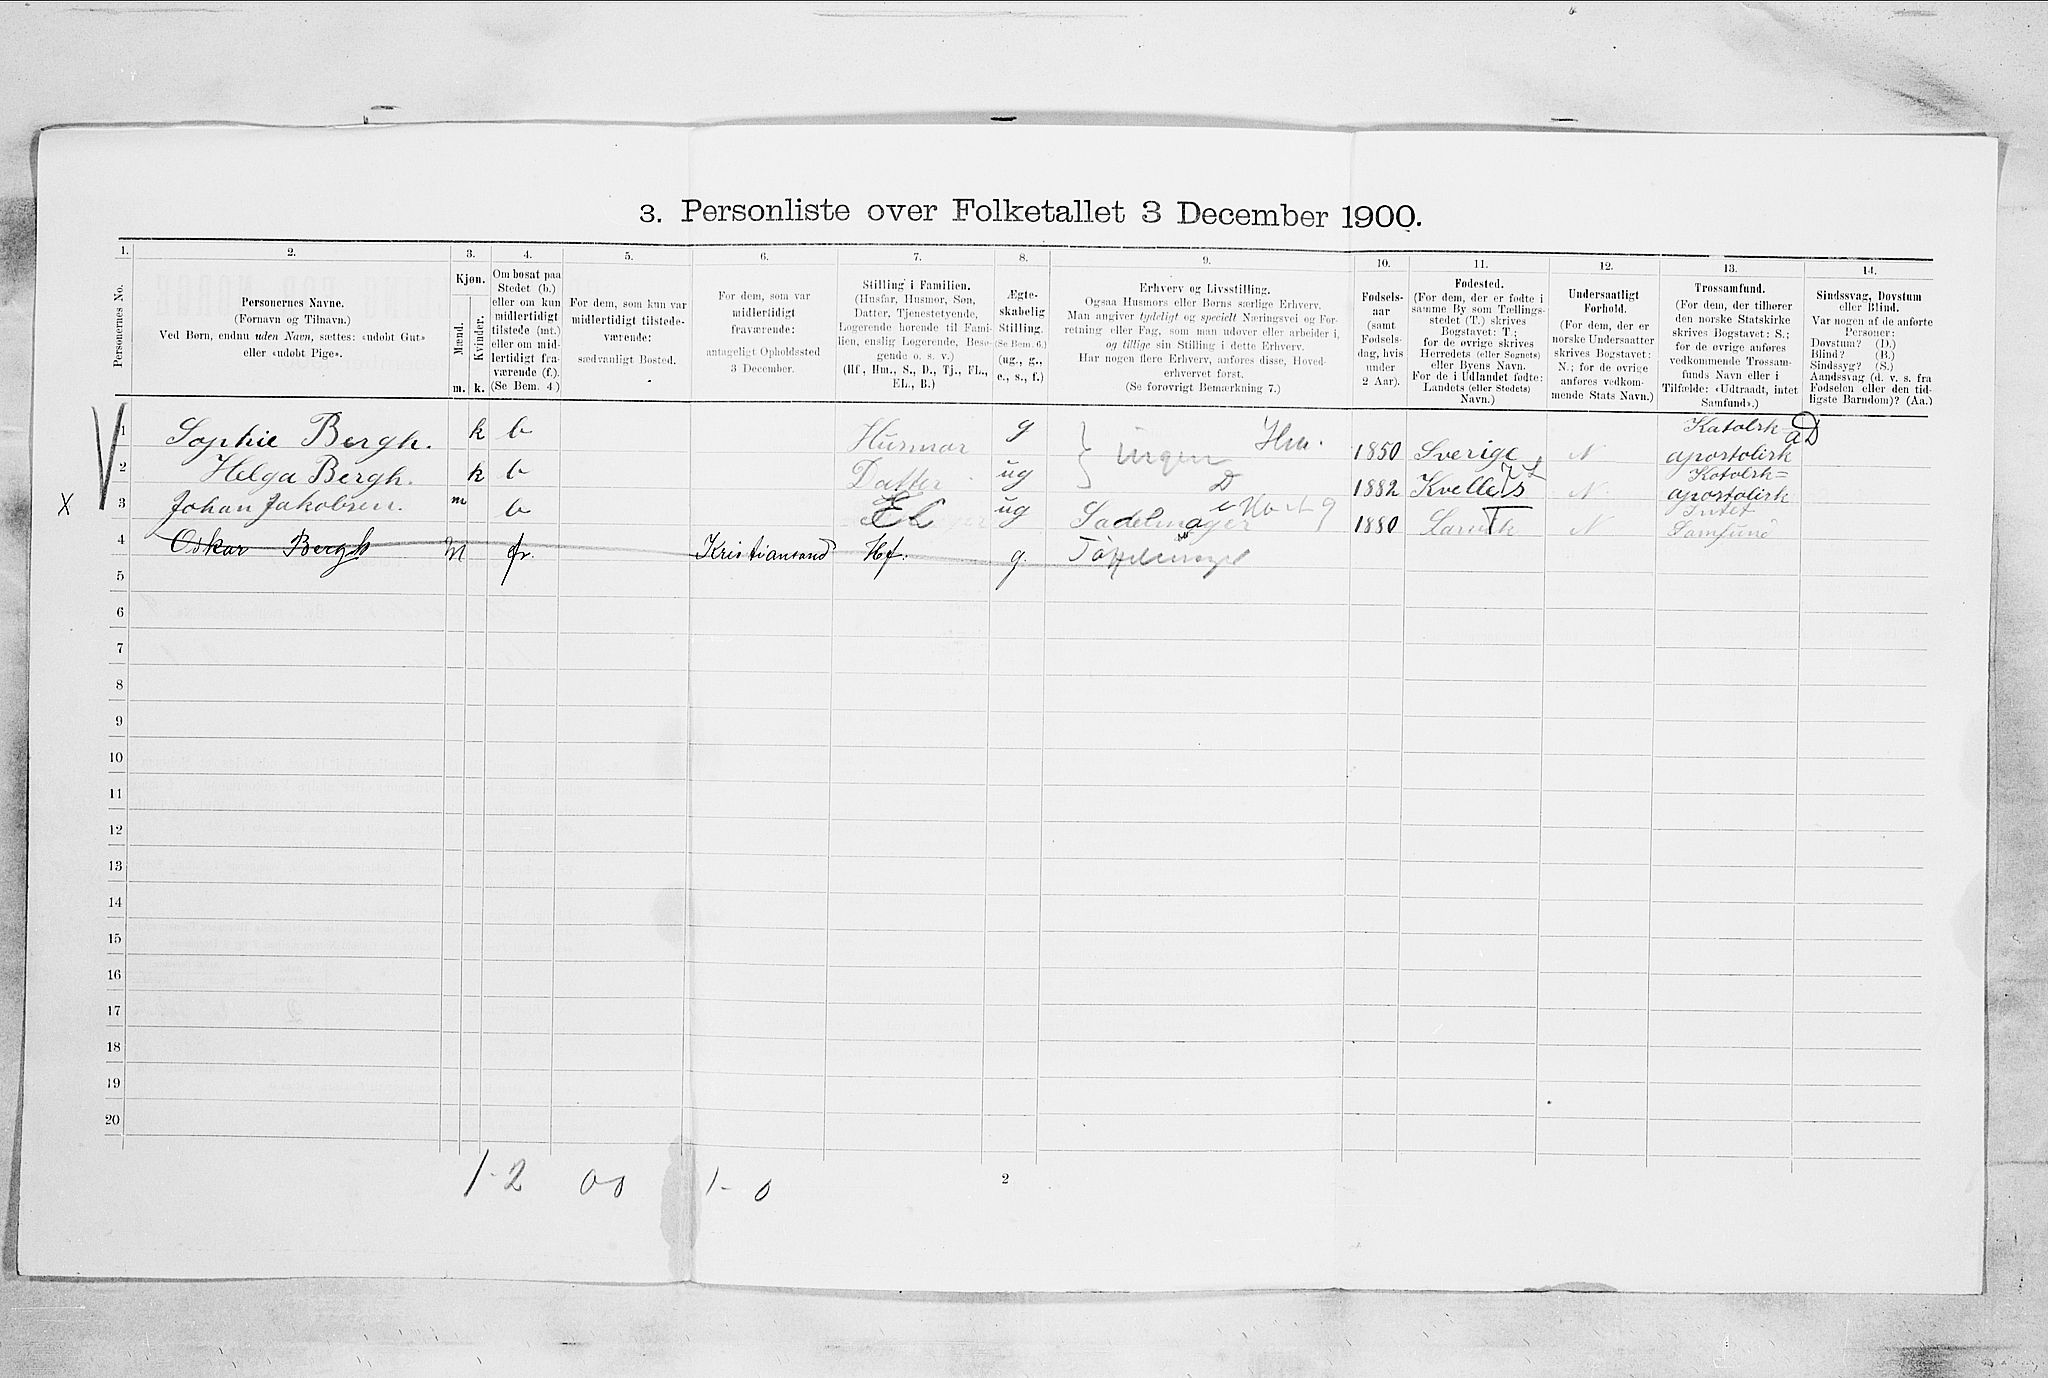 3. Personliste over Folketallet 3 December 1900.
1. 2. 3. 4. 5. 6. 7. 8. 9. 10. 11. 12. 13. 14.
Personernes No.
Personernes Navne.
(Fornavn og Tilnavn.)
Ved Børn, endnu uden Navn, sættes: «udøbt Gut»
eller «udøbt Pige».
Kjøn.
Mænd.
Kvinder.
m. k.
Om bosat paa
Stedet (b.)
eller om kun
midlertidigt
tilstede (mt.)
eller om mid-
lertidigt fra-
værende (f.)
(Se Bem. 4.)
For dem, som kun var
midlertidigt tilstede-
værende:
sædvanligt Bosted.
For dem, som var
midlertidigt
fraværende:
antageligt Opholdssted
3 December.
Stilling i Familien.
(Husfar, Husmor, Søn,
Datter, Tjenestetyende,
Logerende hørende til Fami-
lien, enslig Logerende, Besø-
gende o. s. v.)
(Hf, Hm., S., D., Tj., FL.,
EL., B.)
Ægte-
skabelig
Stilling.
(Se Bem. 6.)
(ug., g.,
e., s., f.)
Erhverv og Livsstilling.
Ogsaa Husmors eller Børns særlige Erhverv.
Man angiver tydeligt og specielt Næringsvei og For-
retning eller Fag, som man udøver eller arbeider i,
og tillige sin Stilling i dette Erhverv.
Har nogen flere Erhverv, anføres disse, Hoved-
erhvervet først.
(Se forøvrigt Bemærkning 7.)
Fødsels-
aar
(samt
Fødsels-
dag, hvis
under
2 Aar).
Fødested.
(For dem, der er fødte i
samme By som Tællings-
stedet (T.) skrives
Bogstavet: T.;
for de øvrige skrives
Herredets (eller Sognets)
eller Byens Navn.
For de i Udlandet fødte:
Landets (eller Stedets)
Navn.)
Undersaatligt
Forhold.
(For dem, der er
norske Undersaatter
skrives Bogstavet:
N.; for de øvrige
anføres vedkom-
mende Stats Navn.)
Trossamfund.
(For dem, der tilhører
den norske Statskirke
skrives Bogstavet: S.;
for de øvrige anføres
vedkommende Trossam-
funds Navn eller i
Tilfælde: «Udtraadt, intet
Samfund».)
Sindssvag, Døvstum
eller Blind.
Var nogen af de anførte
Personer:
Døvstum? (D.)
Blind? (B.)
Sindssyg? (S.)
Aandssvag (d. v. s. fra
Fødselen eller den tid-
ligste Barndom)? (Aa.)
1 Sophie Bergh. k b Husmor g ingen Hm. 1850 Sverige N Katolsk apostolisk
2 Helga Bergh. k b Datter ug D 1882 Kvelle N Katolsk= apostolisk
X 3 Johan Jakobsen. m b EL ug Sadelmager 1880 Larvik T N Intet Samfund
4 Oskar Bergh M fr. Kristiansand Hf. g. Tøffelmager
5
6
7
8
9
10
11
12
13
14
15
16
17
18
19
20
1-2 00 1-0
2